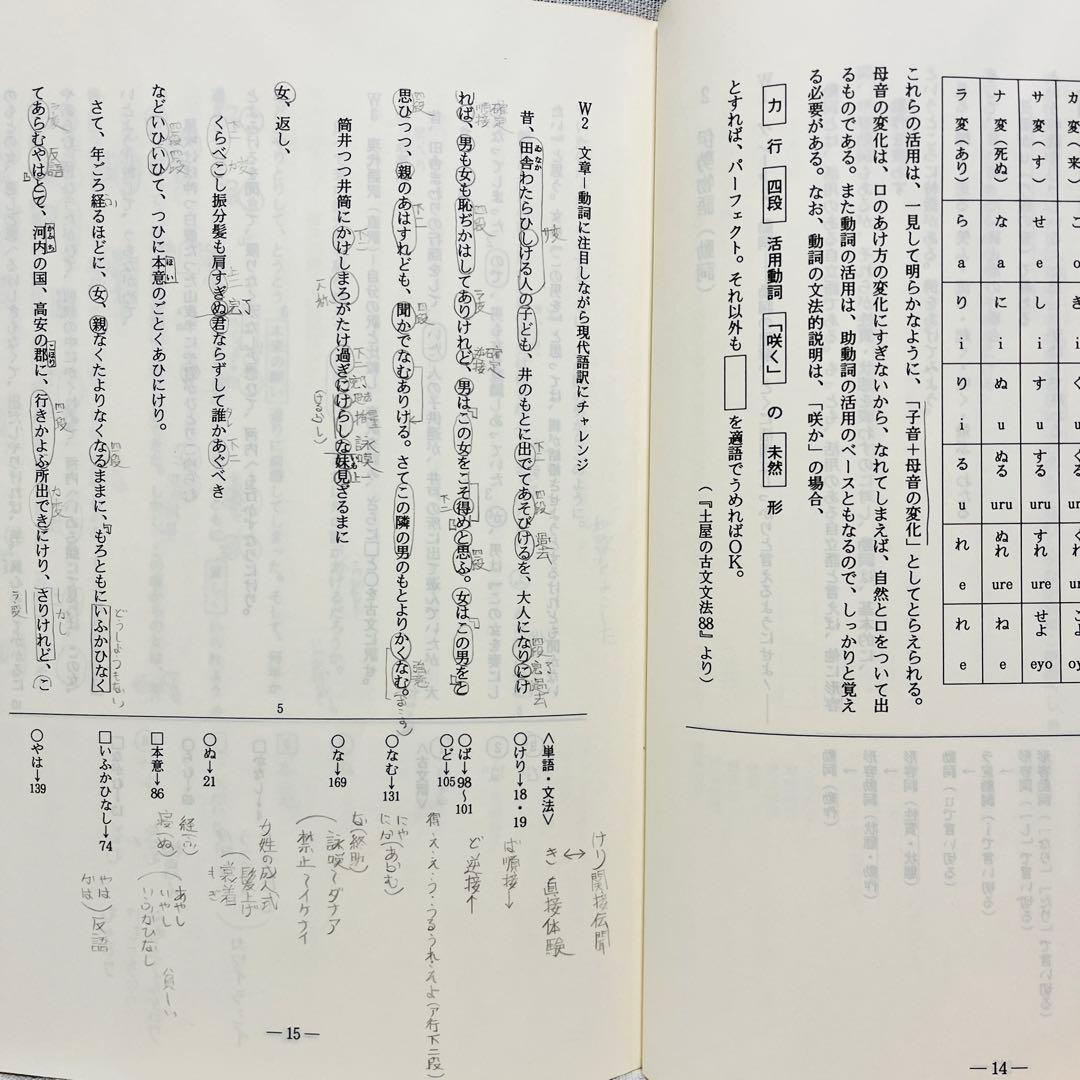 カ変(来)
こ
o
く
くれ
こよ
サ変(す)
せ
e
し
i
す
u
する
uru
すれ
ure
せよ
eyo
ナ変(死ぬ)
な
a
に
i
ぬ
u
ぬる
uru
ぬれ
ure
ね
e
ラ変(あり)
ら
a
り
i
り
i
る
u
れ
e
れ
e
これらの活用は、一見して明らかなように、「子音+母音の変化」としてとらえられる。
母音の変化は、口のあけ方の変化にすぎないから、なれてしまえば、自然と口をついて出
るものである。また動詞の活用は、助動詞の活用のベースともなるので、しっかりと覚え
る必要がある。なお、動詞の文法的説明は、「咲か」の場合、
カ 行 四段 活用動詞 「咲く」 の 未然 形
とすれば、パーフェクト。それ以外も を適語でうめればOK。
(『土屋の古文文法88』より)
—14—
W2 文章—動詞に注目しながら現代語訳にチャレンジ
昔、田舎わたらひしける人の子ども、井のもとに出でてあそびけるを、大人になりにけ
ゐなか
れば、男も女も恥ぢかはしてありけれど、男はこの女をこそ得めと思ふ。女はこの男をと
思ひつつ、親のあはすれども、聞かでなむありける。さてこの隣の男のもとよりかくなむ。
筒井つつ井筒にかけしまろがたけ過ぎにけらしな妹見ざるまに
いも
女、返し、
くらべこし振分髪も肩すぎぬ君ならずして誰かあぐべき
などいひいひて、つひに本意のごとくあひにけり。
ほい
さて、年ごろ経るほどに、女、親なくたよりなくなるままに、もろともにいふかひなく
てあらむやはとて、河内の国、高安の郡に、行きかよふ所出できにけり、さりけれど、こ
かふち
こほり
5
サ変
下二
四段
過去
四段
完了
過去
確定
順接
四段
ラ変
確定
逆接
下二
四段
四段
下二
四段
強意
下二
下二
完
詠嘆
カ変
上二
完了
下二
四段
四段
四段
どうしようもない
ラ変
反語
四段
カ変
しかし
ラ変
<単語・文法>
○けり→18・19
○ば→98〜101
○ど→105
○なむ→131
○な→169
○ぬ→21
□本意→86
□いふかひなし→74
○やは→139
けり 間接伝聞
き 直接体験
ば 順接↓
ど 逆接↑
得・え・え・う・うる・うれ・えよ(ア行下二段)
な(終助)
詠嘆〜ダナア
禁止〜イケナイ
女性の成人式
髪上げ
裳着
もぎ
経(ふ)
寝(ぬ)
あやし
いやし
いふかひなし
やは
かは
反語
—15—